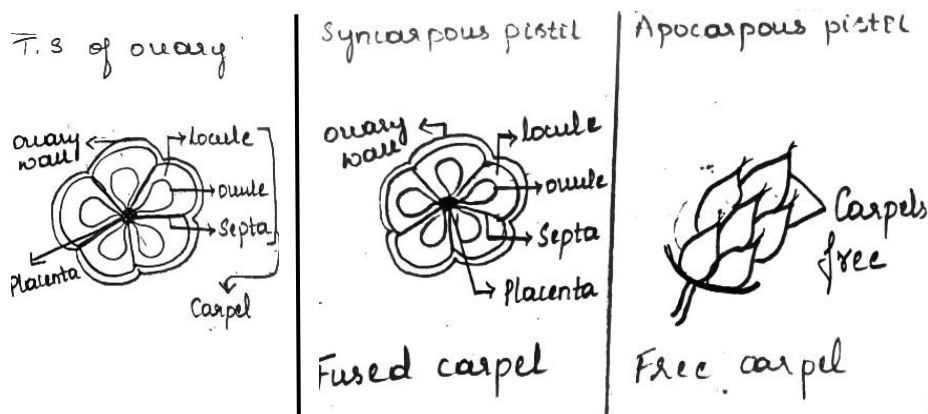 T.S of ovary
ovary
wall
Locule
ovule
Septa
Placenta
Carpel
Syncarpous pistil
ovary
wall
Locule
ovule
Septa
Placenta
Fused carpel
Apocarpous pistil
Carpels
free
Free carpel